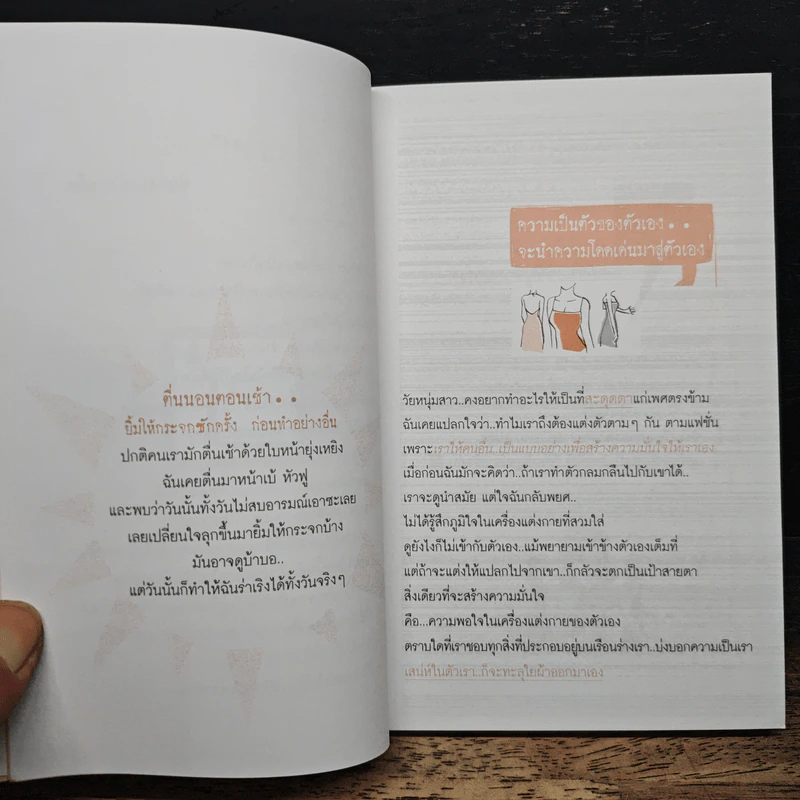 ตื่นนอนตอนเช้า••
ยิ้มให้กระจกซักครั้ง ก่อนทำอย่างอื่น
ปกติคนเรามักตื่นเช้าด้วยใบหน้ายุ่งเหยิง
ฉันเคยตื่นมาหน้าเบ้ หัวฟู
และพบว่าวันนั้นทั้งวันไม่สบอารมณ์เอาซะเลย
เลยเปลี่ยนใจลุกขึ้นมายิ้มให้กระจกบ้าง
มันอาจดูบ้าบอ..
แต่วันนั้นก็ทำให้ฉันร่าเริงได้ทั้งวันจริงๆ
ความเป็นตัวของตัวเอง••
จะนำความโดดเด่นมาสู่ตัวเอง
วัยหนุ่มสาว..คงอยากทำอะไรให้เป็นที่สะดุดตาแก่เพศตรงข้าม
ฉันเคยแปลกใจว่า..ทำไมเราถึงต้องแต่งตัวตามๆ กัน ตามแฟชั่น
เพราะเราให้คนอื่น..เป็นแบบอย่างเพื่อสร้างความมั่นใจให้เราเอง
เมื่อก่อนฉันมักจะคิดว่า..ถ้าเราทำตัวกลมกลืนไปกับเขาได้..
เราจะดูนำสมัย แต่ใจฉันกลับพยศ..
ไม่ได้รู้สึกภูมิใจในเครื่องแต่งกายที่สวมใส่
ดูยังไงก็ไม่เข้ากับตัวเอง..แม้พยายามเข้าข้างตัวเองเต็มที่
แต่ถ้าจะแต่งให้แปลกไปจากเขา..ก็กลัวจะตกเป็นเป้าสายตา
สิ่งเดียวที่จะสร้างความมั่นใจ
คือ...ความพอใจในเครื่องแต่งกายของตัวเอง
ตราบใดที่เราชอบทุกสิ่งที่ประกอบอยู่บนเรือนร่างเรา..บ่งบอกความเป็นเรา
เสน่ห์ในตัวเรา..ก็จะทะลุใยผ้าออกมาเอง